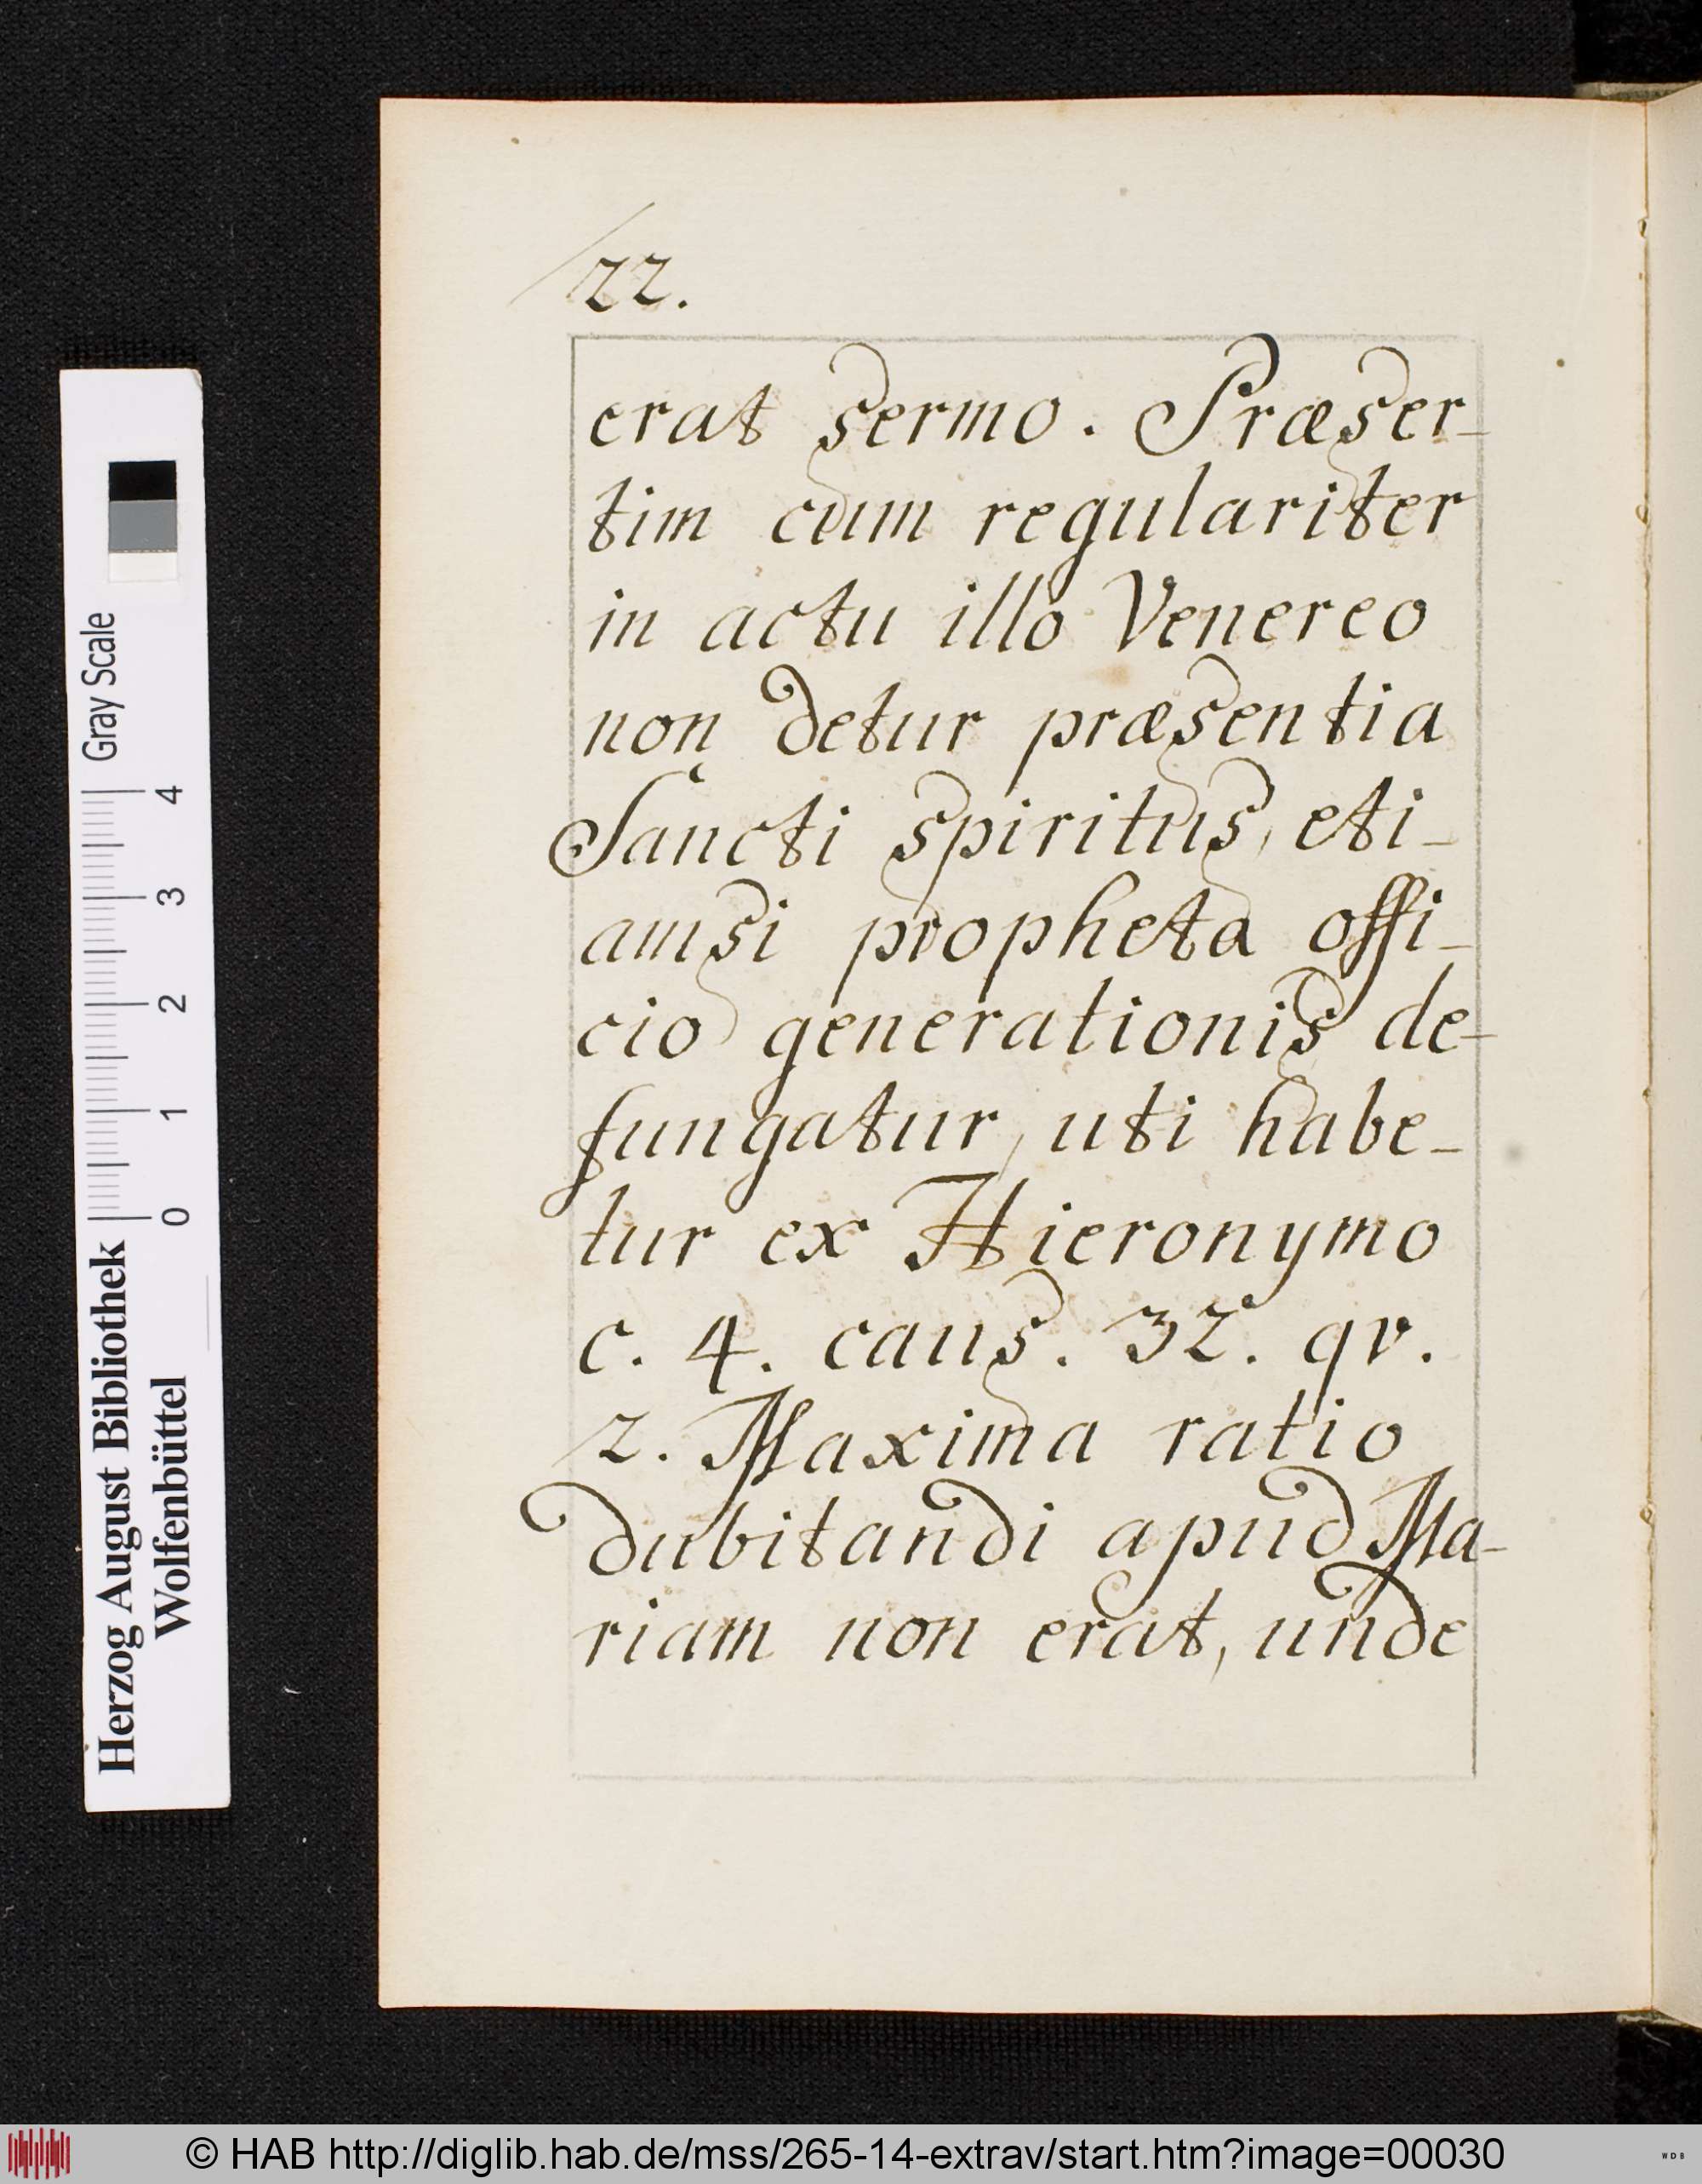 22.
erat sermo. Præser-
tim cum regulariter
in actu illo Venereo
non detur præsentia
Sancti spiritus, eti-
amsi propheta offi-
cio generationis de-
fungatur, uti habe-
tur ex Hieronymo
c. 4. caus. 32. qv.
2. Maxima ratio
dubitandi apud Ma-
riam non erat, unde
Herzog August Bibliothek
Wolfenbüttel
0 1 2 3 4
Gray Scale
© HAB http://diglib.hab.de/mss/265-14-extrav/start.htm?image=00030
WDB